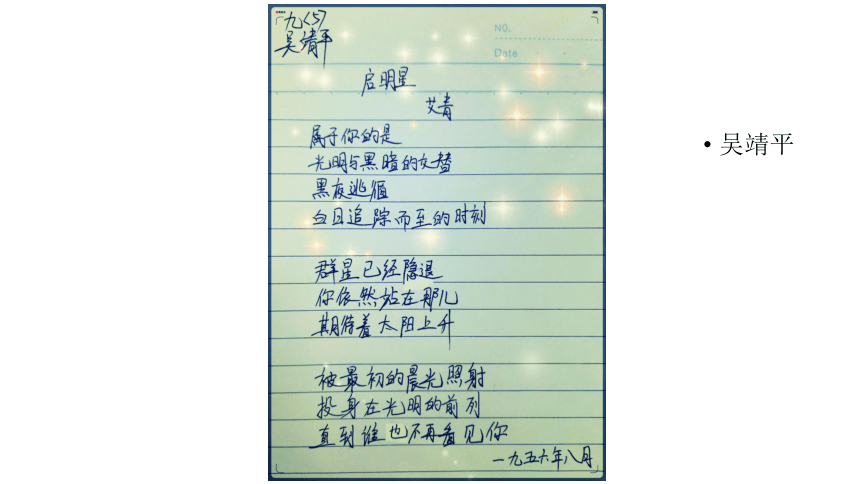 九(5)
吴靖平
NO.
Date
启明星
艾青
属于你的是
光明与黑暗的交替
黑夜逃循
白日追踪而至的时刻
群星已经隐退
你依然站在那儿
期待着太阳上升
被最初的晨光照射
投身在光明的前列
直到谁也不再看见你
一九五六年八月
• 吴靖平